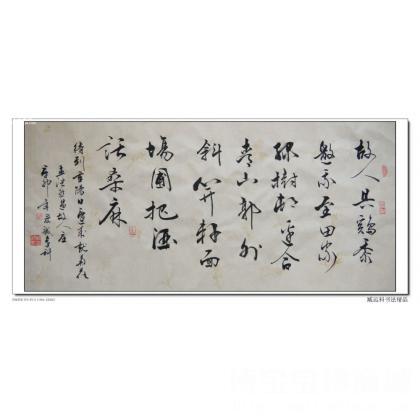 故人具鷄黍
邀我至田家
绿樹邨邊合
青山郭外
斜開軒面
場圃把酒
話桑麻
待到重陽日還來就菊花
孟浩然過故人庄
辛卯年
书法精品